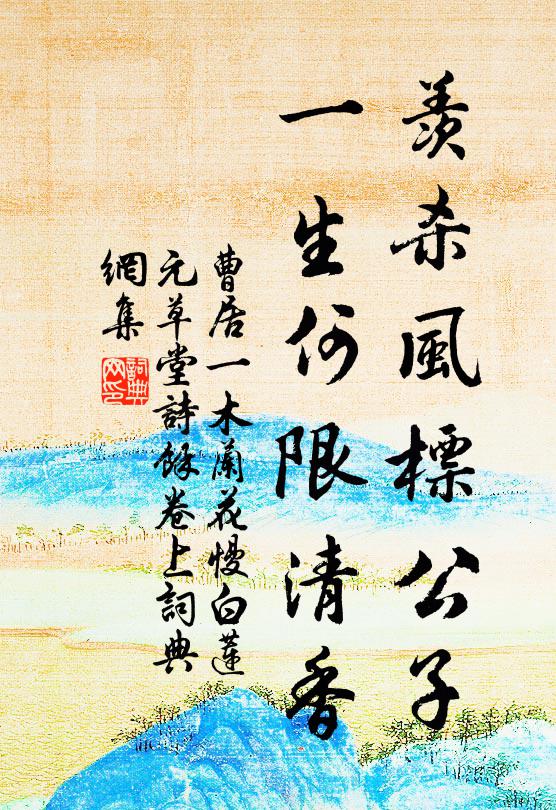 羨殺風標公子
一生何限清香
曹居一木蘭花慢白蓮
元草堂詩餘卷上詞典
網集
詞典
网印